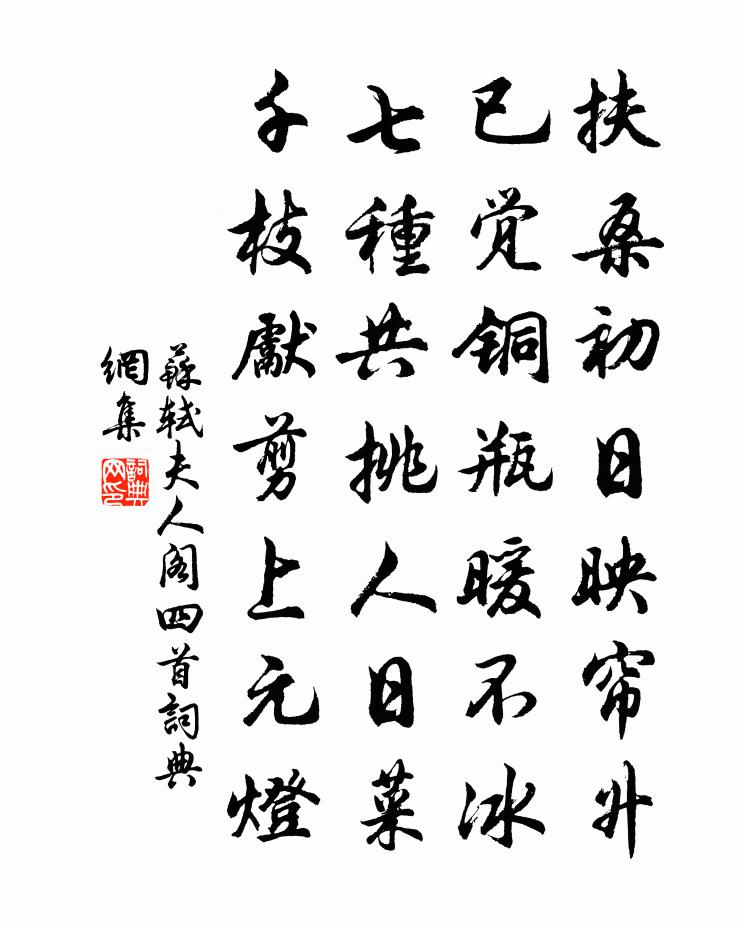 扶桑初日映帘升
已觉铜瓶暖不冰
七種共挑人日菜
千枝獻剪上元燈
蘇轼夫人阁四首詞典
網集
詞典网印